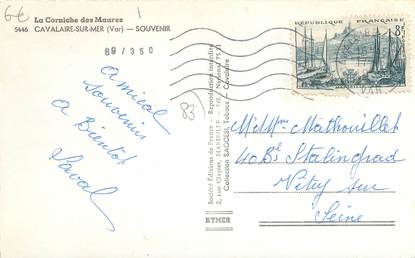 6€
La Corniche des Maures
5446 CAVALAIRE-SUR-MER (Var) — SOUVENIR
89/350
Amical
souvenir
A Bientôt
83
Société Editions de France - Reproduction interdite
2, rue Clapier, MARSEILLE - Tél. National 75.31
Collection SAGGESI, Tabacs - Cavalaire
RYNER
RÉPUBLIQUE FRANÇAISE
8F
VAR
Mr Mme Mathouillet
40 Bd Stalingrad
Vitry sur
Seine